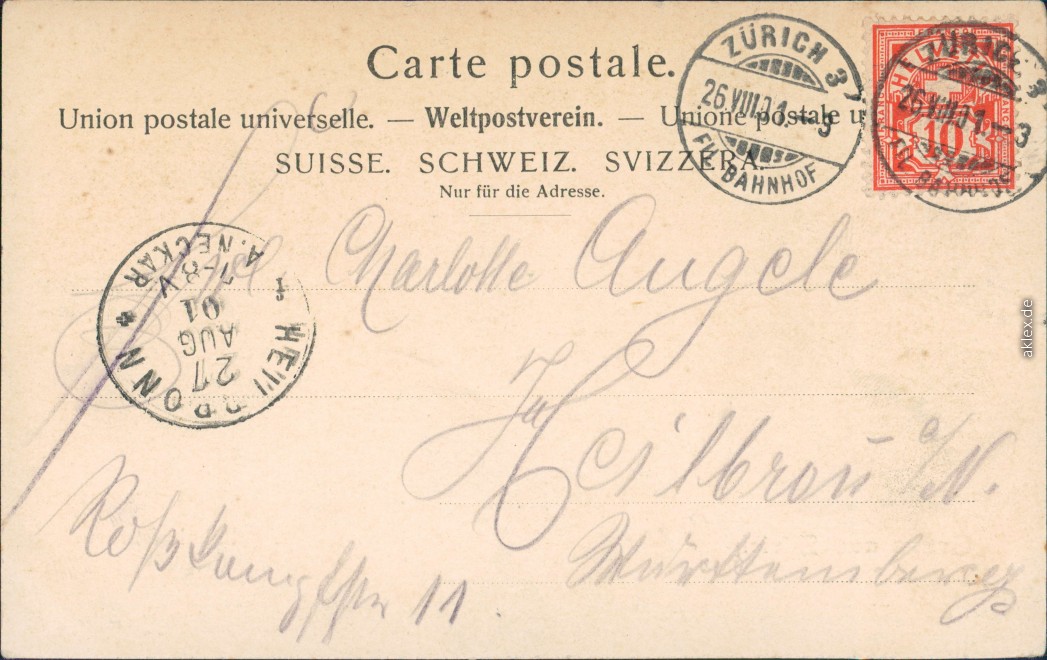 Carte postale.
Union postale universelle. — Weltpostverein. — Unione postale u
SUISSE. SCHWEIZ. SVIZZERA.
Nur für die Adresse.
ZÜRICH 3
26.VIII.01.–3
BAHNHOF
HELVETIA
10
ZÜRICH 3
26.VIII.01.–3
HEILBRONN
A. NECKAR
27
AUG
01
7-8
Charlotte Angele
Heilbronn a/N.
Württemberg
11
aklex.de